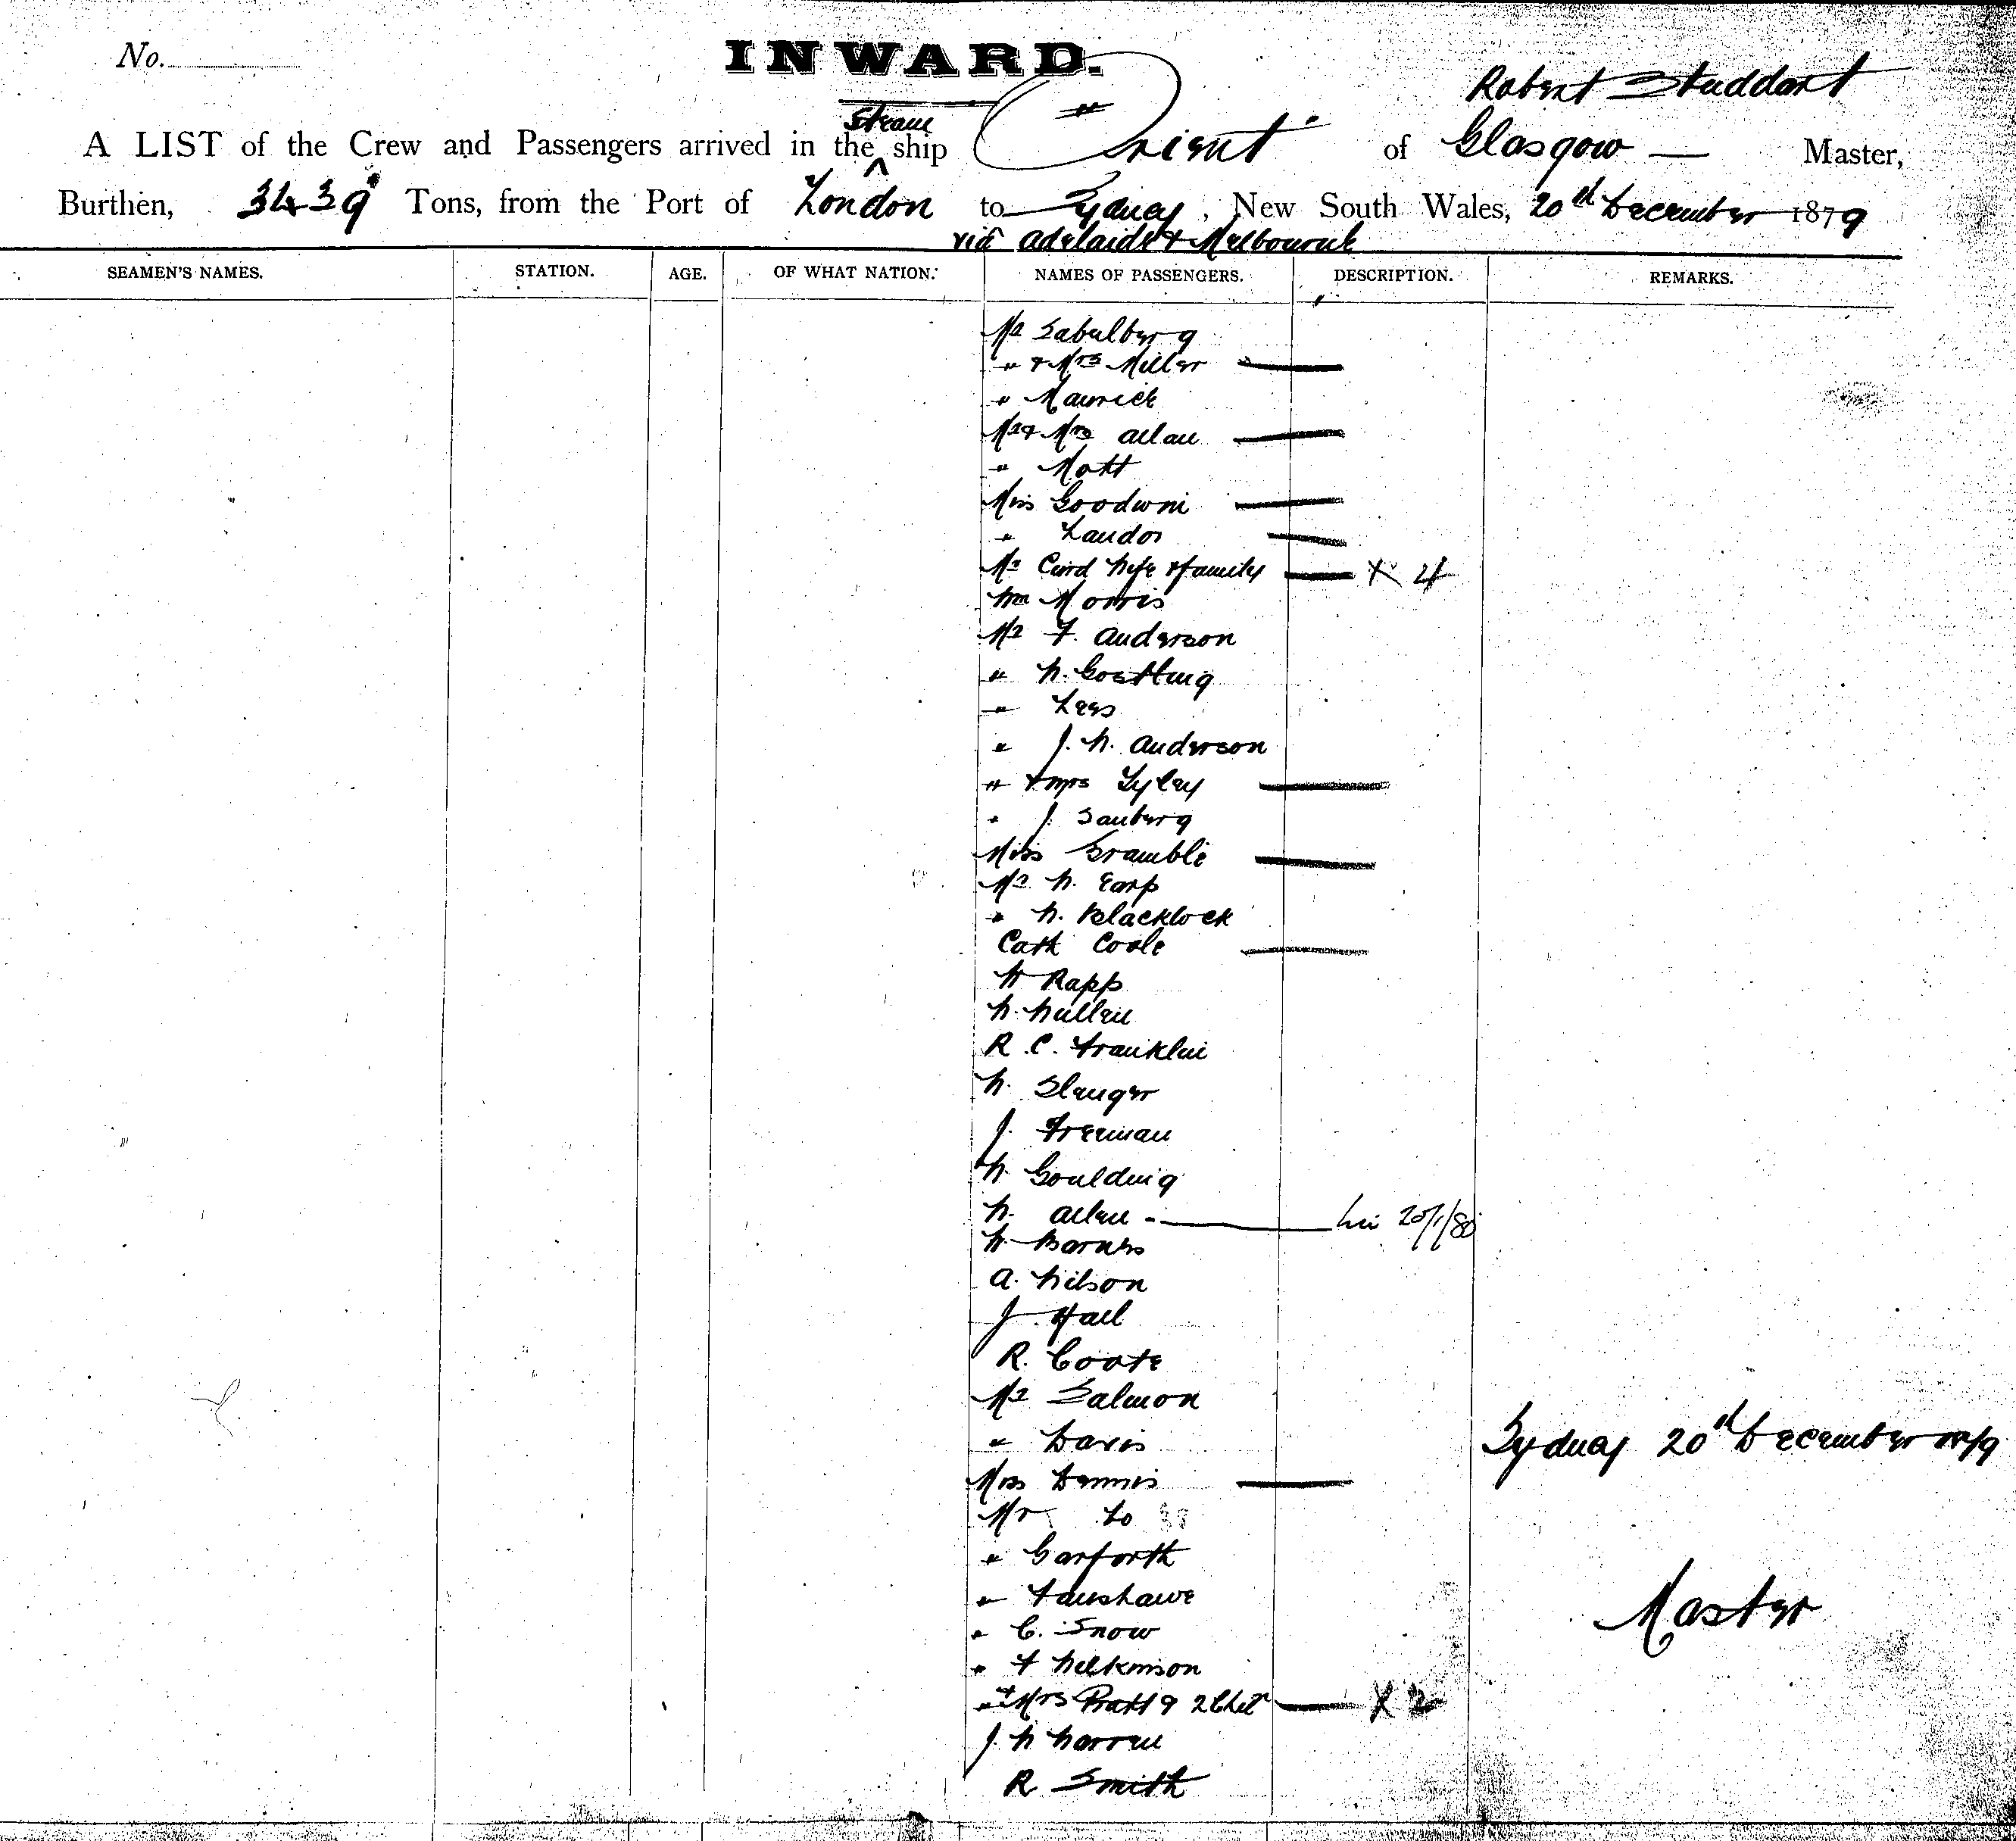 No.
INWARD.
Robert Studdart
A LIST of the Crew and Passengers arrived in the ^ Steam ship "Orient" of Glasgow — Master,
Burthen, 3439 Tons, from the Port of London to Sydney, New South Wales, 20th December 1879
via Adelaide & Melbourne
SEAMEN'S NAMES. STATION. AGE. OF WHAT NATION. NAMES OF PASSENGERS. DESCRIPTION. REMARKS.
Mr Sabelberg
" & Mrs Miller
" Maurice
Mr & Mrs Allan
" Mott
Miss Goodwin
" Landor
Mr Curd Wife & family X 4
Wm Morris
Mr F. Anderson
" W. Gostling
" Lees
" J. W. Anderson
" & Mrs Lyley
" J. Sanberg
Miss Bramble
Mr W. Earp
" W. Blacklock
Cath Coole
W Rapp
W. Wullen
R. C. Franklin
W. Slenger
J. Freeman
W Goulding
W. Allen 20/1/80
W Barnes
A. Wilson
J. Hall
R. Coote
Mr Salmon
" Davis
Miss Dennis
Mr Do
" Garforth
" Fanshawe
" C. Snow
" F Wilkinson
" & Mrs Pratt & 2 Chil X 2
J. W Warren
R Smith
Sydney 20th December 1879
Master